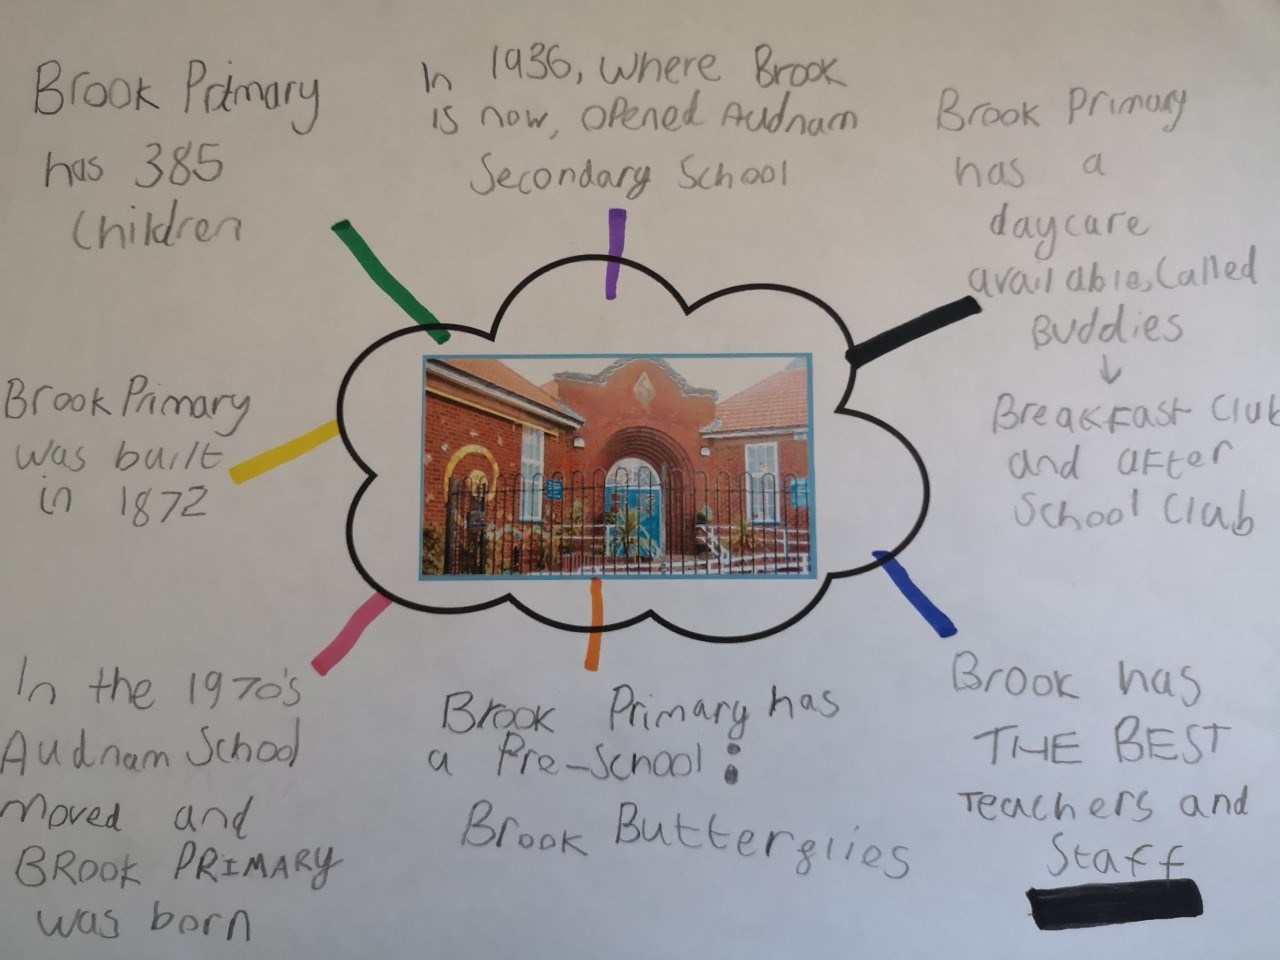 Brook Primary
has 385
Children
In 1936, where Brook
is now, opened Audnam
Secondary School
Brook Primary
has a
daycare
available, Called
Buddies
↓
Breakfast Club
and after
School Club
Brook Primary
was built
in 1872
In the 1970's
Audnam School
moved and
BROOK PRIMARY
was born
Brook Primary has
a Pre-School:
Brook Butterflies
Brook has
THE BEST
Teachers and
Staff